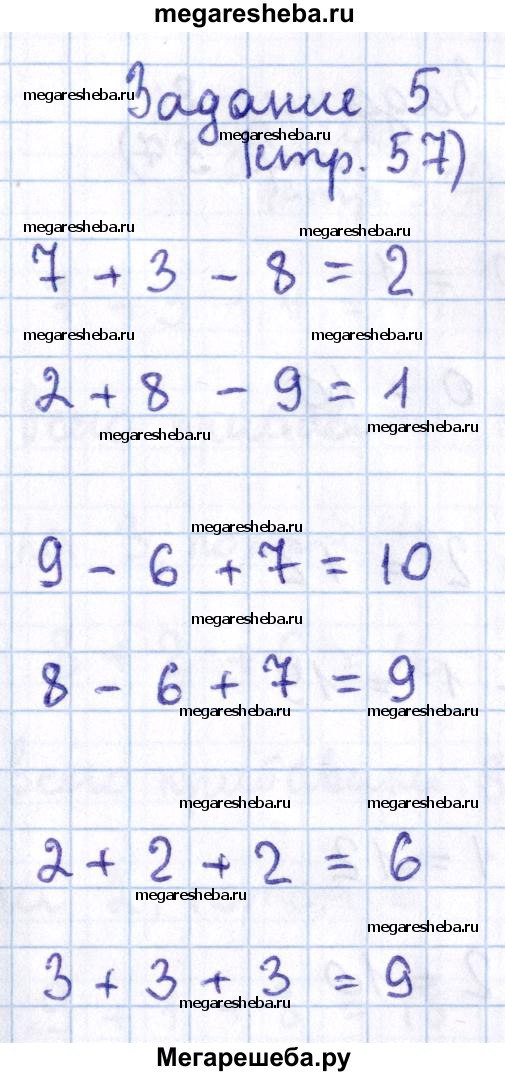 megaresheba.ru
megaresheba.ru
Задание 5
megaresheba.ru
(стр. 57)
megaresheba.ru megaresheba.ru
7 + 3 - 8 = 2
megaresheba.ru megaresheba.ru
2 + 8 - 9 = 1
megaresheba.ru megaresheba.ru
megaresheba.ru
9 - 6 + 7 = 10
megaresheba.ru
8 - 6 + 7 = 9
megaresheba.ru megaresheba.ru
megaresheba.ru megaresheba.ru
2 + 2 + 2 = 6
megaresheba.ru
megaresheba.ru
3 + 3 + 3 = 9
megaresheba.ru
Мегарешеба.ру